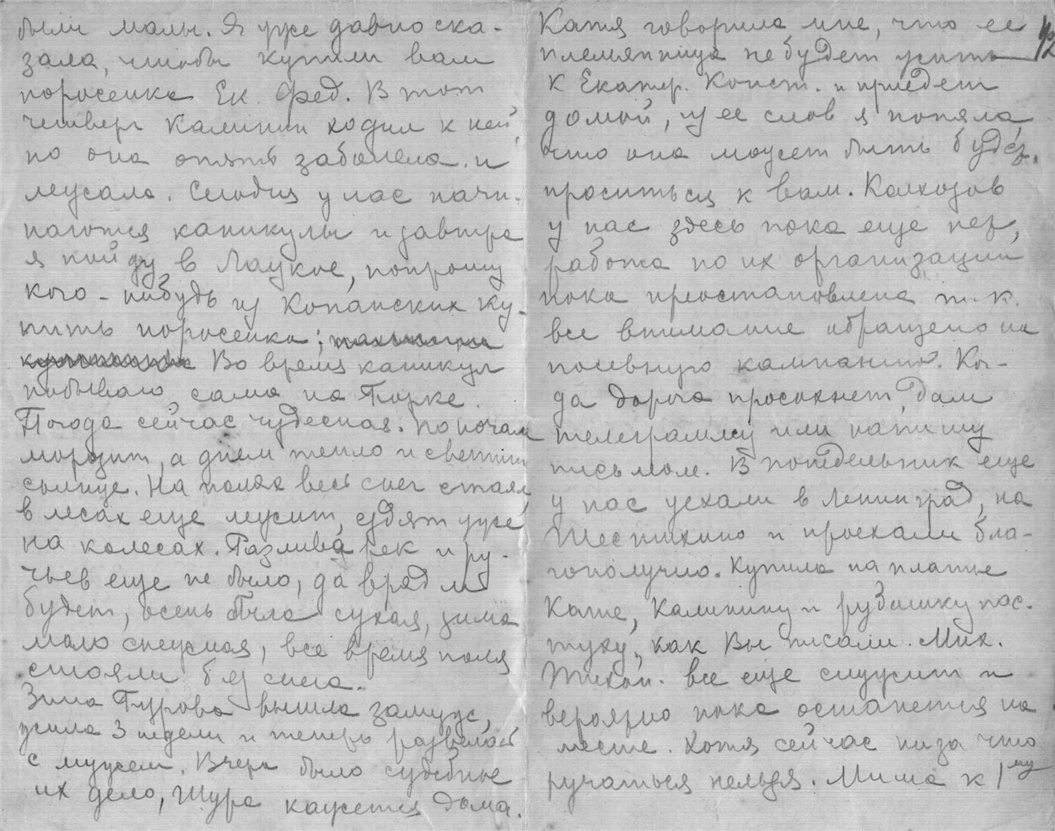 были малы. Я уже давно ска-
зала, чтобы купили вам
поросенка Ек. Фед. В тот
четверг Калинин ходил к ней,
но она опять заболела и
лежала. Сегодня у нас начи-
наются каникулы и завтра
я пойду в Лаукое, попрошу
кого-нибудь из Копанских ку-
пить поросенка;
Во время каникул
побываю сама на Горке.
Погода сейчас чудесная. По ночам
морозит, а днем тепло и светит
солнце. На полях весь снег стаял,
в лесах еще лежит, ездят уже
на колесах. Разлива рек и ру-
чьев еще не было, да вряд ли
будет, осень была сухая, зима
мало снежная, все время поля
стояли без снега.
Зина Гурова вышла замуж,
жила 3 недели и теперь
с мужем. Вчера было судебное
их дело, Шура кажется дома.
Катя говорила мне, что ее
племянница не будет жить
к Екатер. Конст. и приедет
домой, из ее слов я поняла,
что она может быть будет
проситься к вам. Колхозов
у нас здесь пока еще нет,
работа по их организации
пока преостановлена т.к.
все внимание обращено на
посевную кампанию. Ког-
да дорога просохнет, дам
телеграмму или напишу
письмом. В понедельник еще
у нас уехали в Ленинград, на
и проехали бла-
гополучно. Купила на платье
Кате, Калинину и рубашку пас-
туху, как Вы писали. Мих.
Тихон. все еще служит и
вероятно пока останется на
месте. Хотя сейчас низа что
ручаться нельзя. Миша к 1му